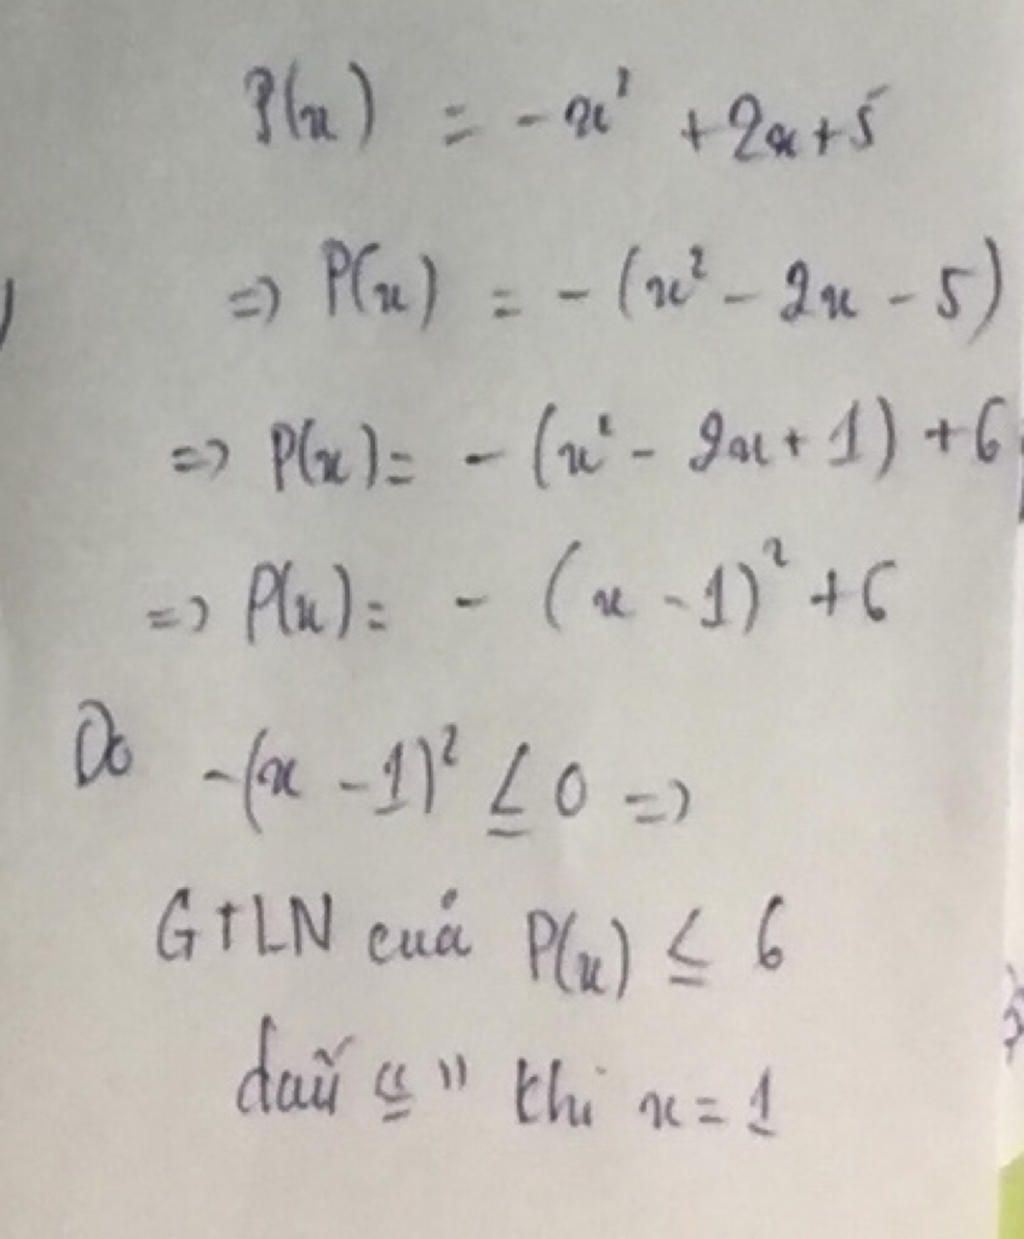 P(x) = -x² + 2x + 5
=> P(x) = -(x² - 2x - 5)
=> P(x) = - (x² - 2x + 1) + 6
=> P(x) = - (x - 1)² + 6
Do -(x - 1)² ≤ 0 =>
GTLN của P(x) ≤ 6
dấu "=" khi x = 1